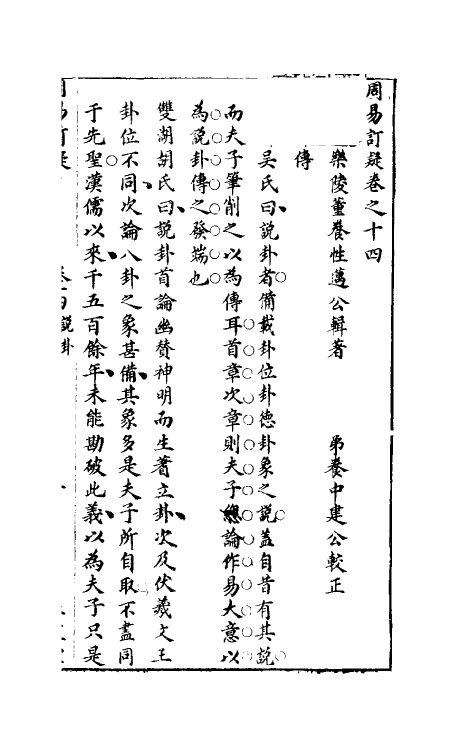 周易訂疑卷之十四
樂陵董養性邁公輯著　弟養中建公較正
傳
吳氏曰說卦者備載卦位卦德卦象之說蓋自昔有其說
而夫子筆削之以為傳耳首章次章則夫子總論作易大意以
為說卦傳之發端也
雙湖胡氏曰說卦首論幽贊神明而生蓍立卦次及伏羲文王
卦位不同次論八卦之象甚備其象多是夫子所自取不盡同
于先聖漢儒以來千五百餘年未能勘破此義以為夫子只是
周易訂疑　卷十四說卦